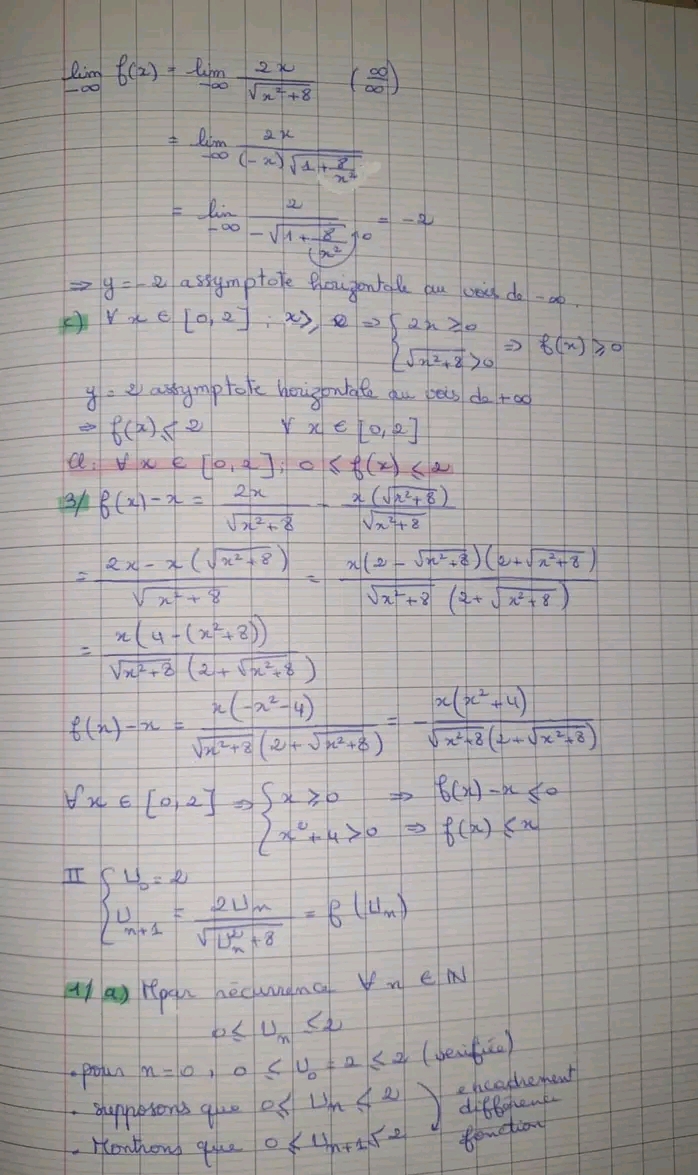 lim f(x) = lim 2x / √(x²+8) (∞/∞)
-∞ -∞
= lim 2x / ((-x)√(1+8/x²))
-∞
= lim 2 / (-√(1+8/x²)) = -2
-∞ →0
⇒ y=-2 assymptote horizontale au vois de -∞.
c) ∀ x ∈ [0,2] ; x ≥ 0 ⇒ { 2x ≥ 0 ; √(x²+8) > 0 ⇒ f(x) ≥ 0
y = 2 assymptote horizontale au vois de +∞
⇒ f(x) ≤ 2 ∀ x ∈ [0,2]
Cl: ∀ x ∈ [0,2] ; 0 ≤ f(x) ≤ 2
3/ f(x)-x = 2x / √(x²+8) - x(√(x²+8)) / √(x²+8)
= (2x - x(√(x²+8))) / √(x²+8) = x(2-√(x²+8))(2+√(x²+8)) / (√(x²+8) (2+√(x²+8)))
= x(4-(x²+8)) / (√(x²+8) (2+√(x²+8)))
f(x)-x = x(-x²-4) / (√(x²+8)(2+√(x²+8))) = - x(x²+4) / (√(x²+8)(2+√(x²+8)))
∀x ∈ [0,2] ⇒ { x ≥ 0 ⇒ f(x)-x ≤ 0
x²+4 > 0 ⇒ f(x) ≤ x
II { U₀ = 2
Uₙ₊₁ = 2Uₙ / √(Uₙ²+8) = f(Uₙ)
1/ a) Mpar récurrence ∀ n ∈ ℕ
0 ≤ Uₙ ≤ 2
• pour n=0, 0 ≤ U₀ = 2 ≤ 2 (vérifiée)
• supposons que 0 ≤ Uₙ ≤ 2 encadrement
différence
• Montrons que 0 ≤ Uₙ₊₁ ≤ 2 fonction